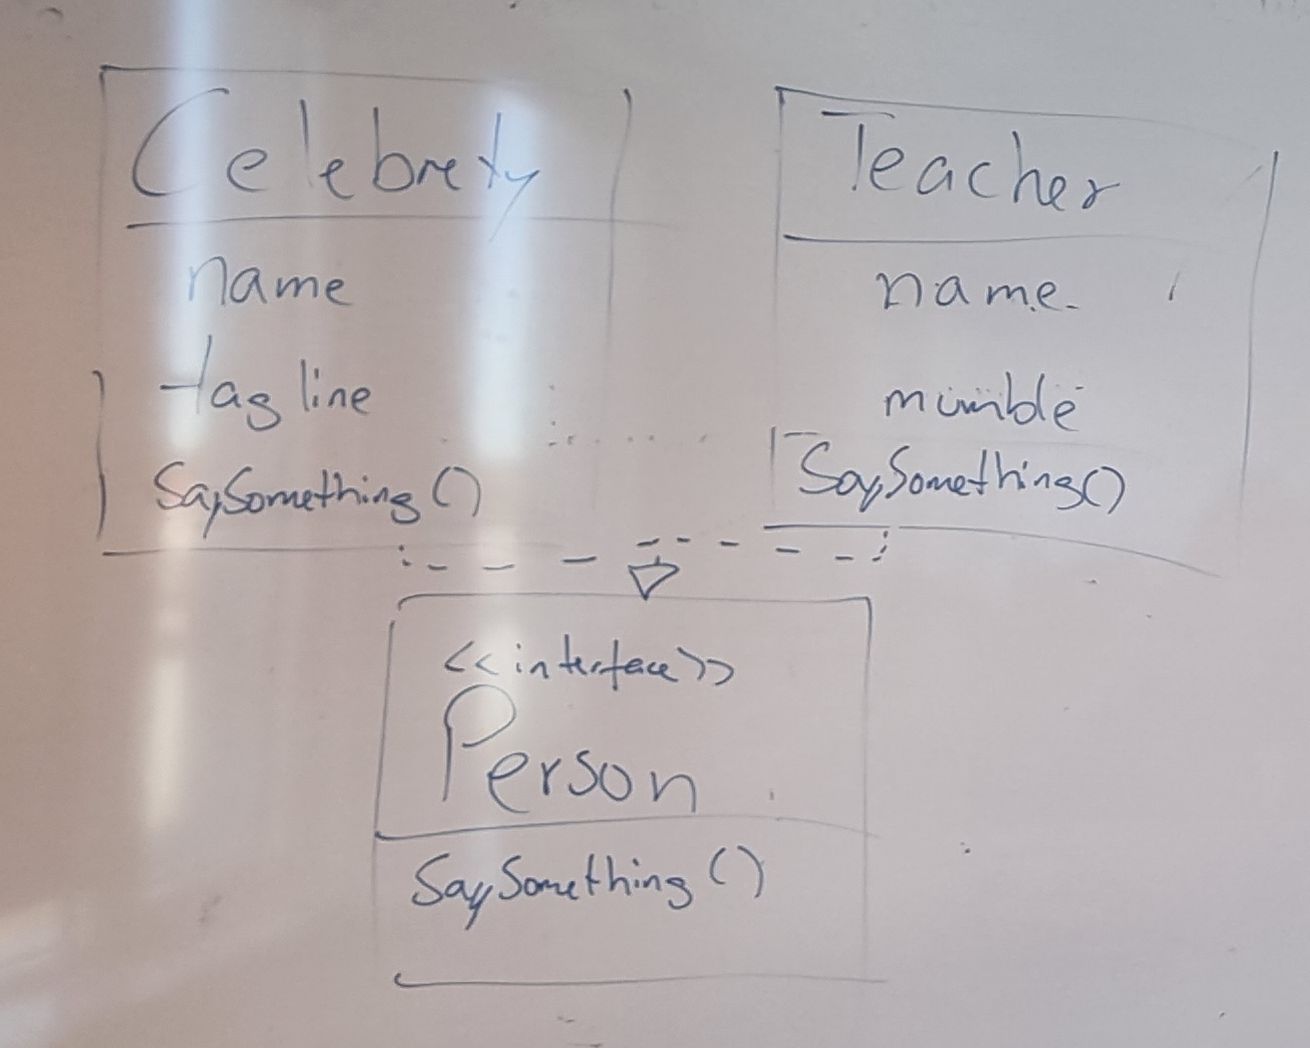 Celebrety
name
tag line
SaySomething()
Teacher
name
mumble
SaySomething()
<<interface>>
Person
SaySomething()